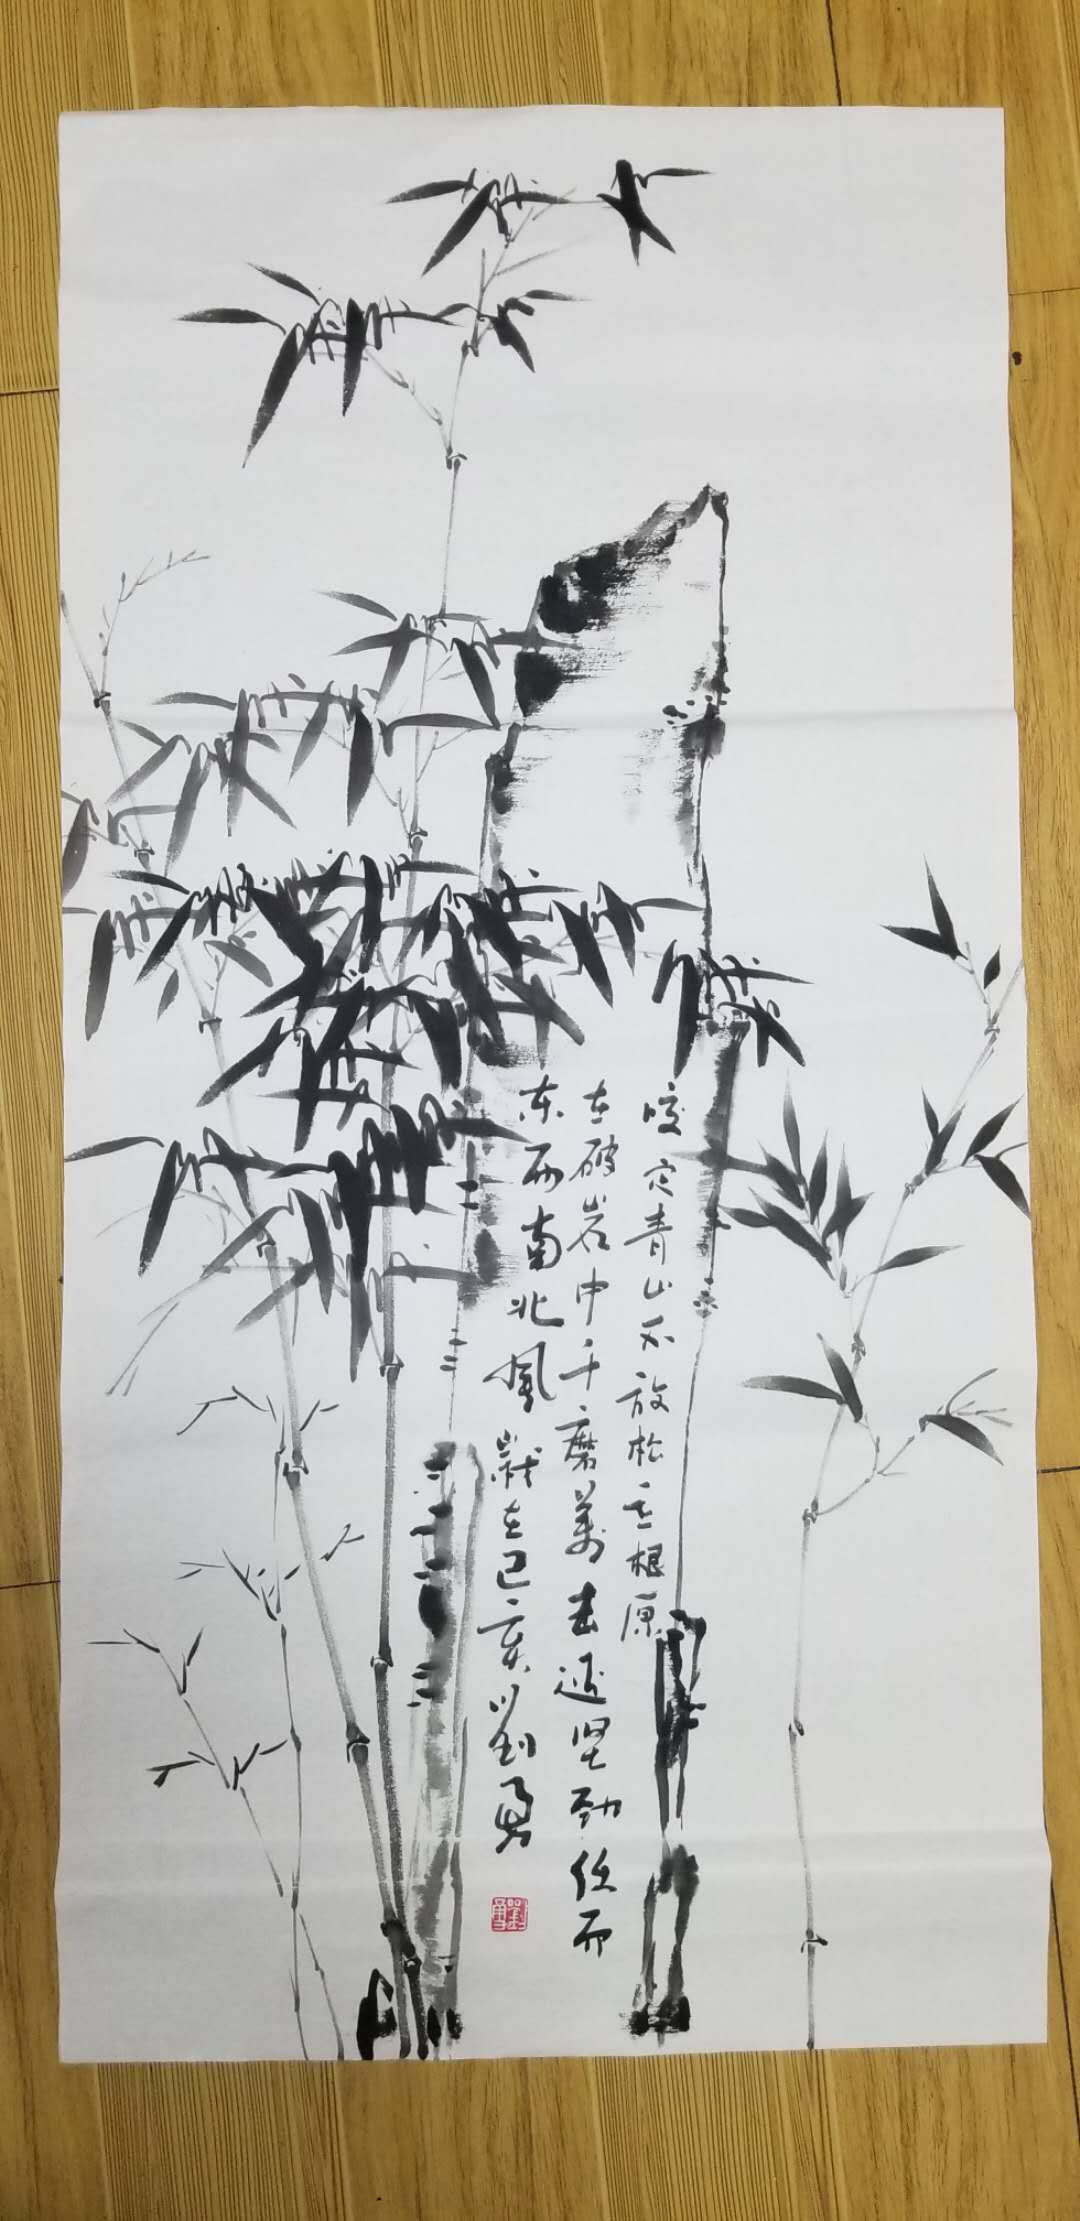 咬定青山不放松立根原
在破岩中千磨万击还坚劲任尔
东西南北风岁在己亥刘勇
刘勇